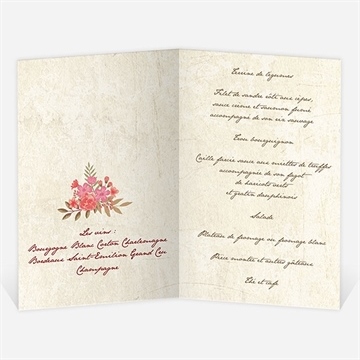 Les vins :
Bourgogne Blanc Corton Charlemagne
Bordeaux Saint-Emilion Grand Cru
Champagne
Terrine de légumes
Filet de sandre rôti aux cèpes,
sauce crème et saumon fumé
accompagné de son riz sauvage
Trou bourguignon
Caille farcie sauce aux miettes de truffes
accompagnée de son fagot
de haricots verts
et gratin dauphinois
Salade
Plateau de fromage ou fromage blanc
Pièce montée et autres gâteaux
Thé et café